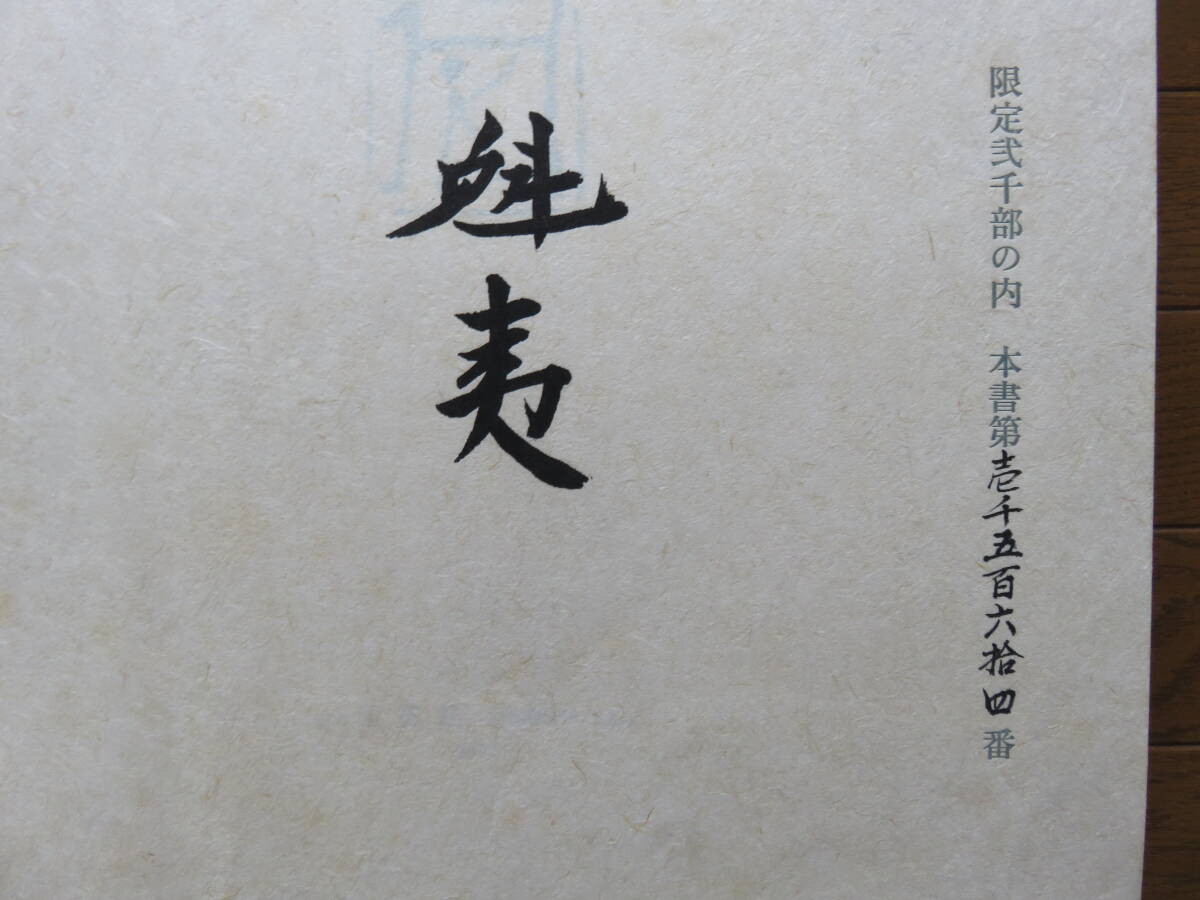 限定弐千部の内　本書第壱千五百六拾四番
魁夷